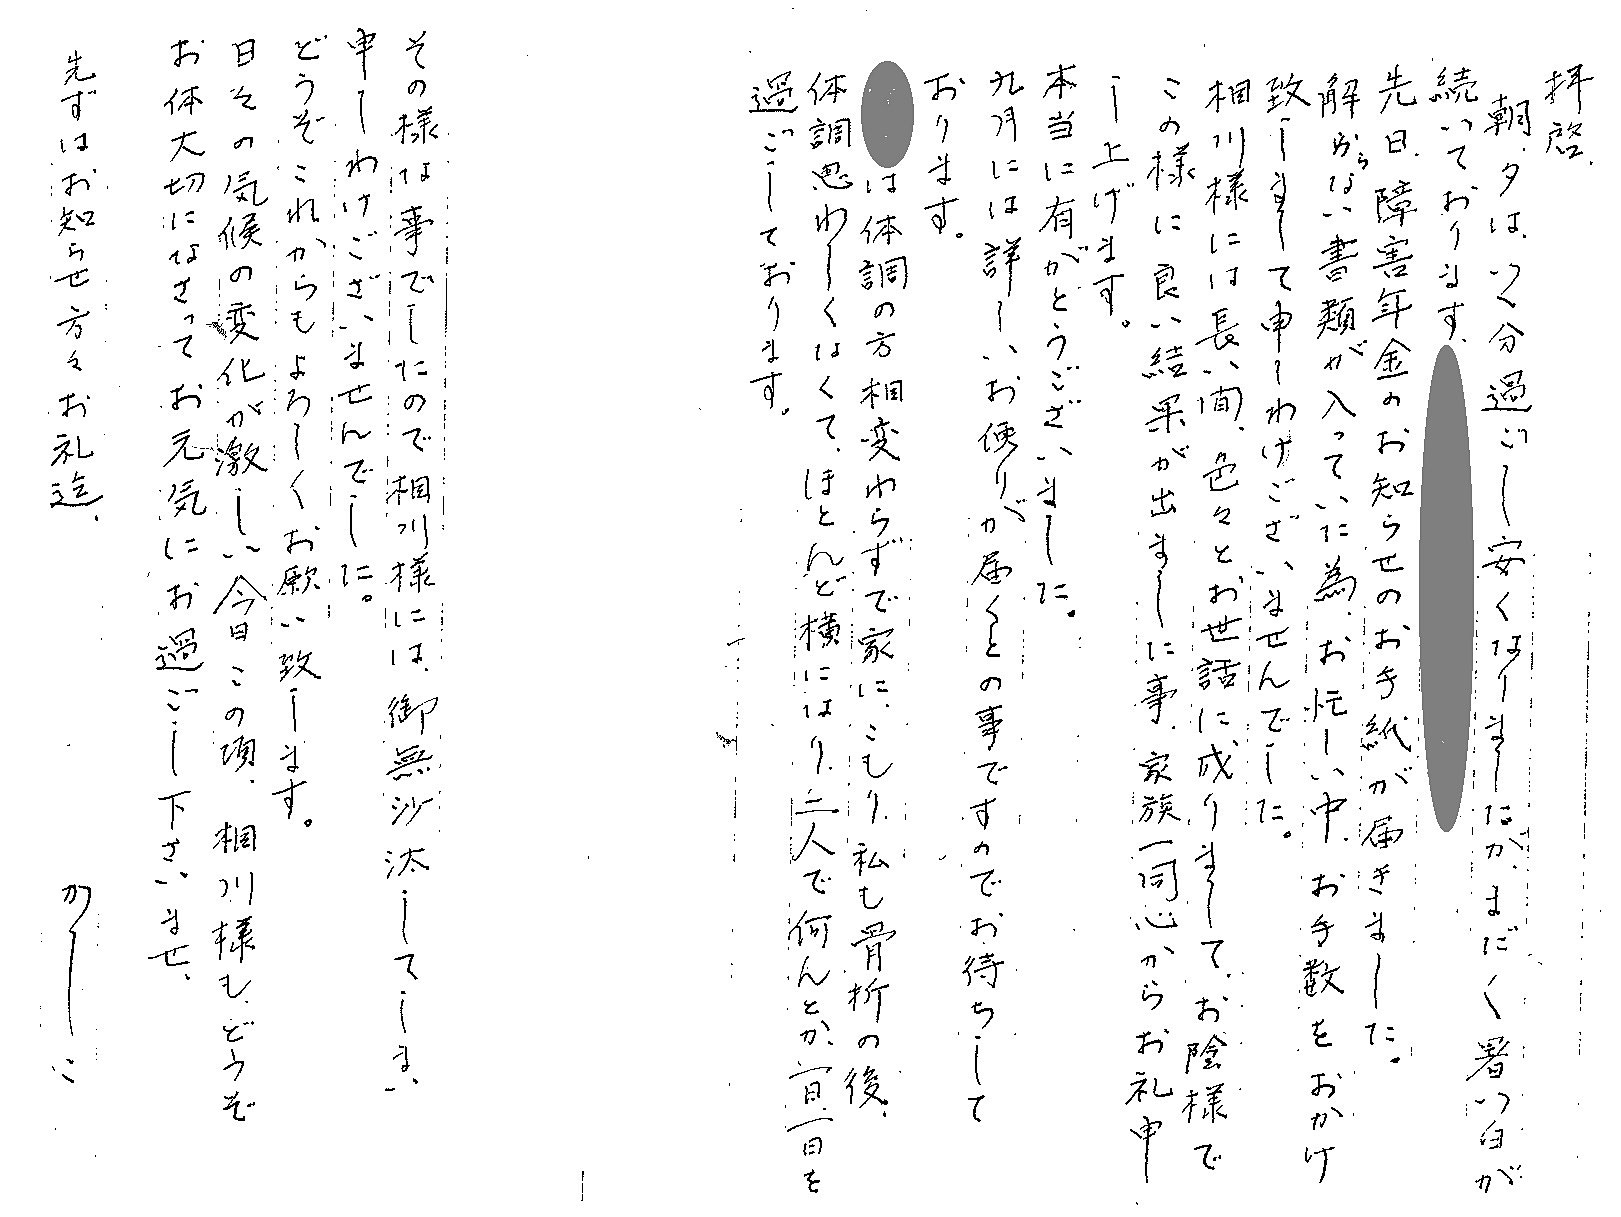 拝啓、
朝、夕は、いく分過ごし安くなりましたが、まだまだ暑い日が
続いております。
先日、障害年金のお知らせのお手紙が届きました。
解からない書類が入っていた為、お忙しい中、お手数をおかけ
致しまして申しわけございませんでした。
相川様には長い間、色々とお世話に成りまして、お陰様で
この様に良い結果が出ました事、家族一同心からお礼申
し上げます。
本当に有がとうございました。
九月には詳しいお便りが届くとの事ですのでお待ちして
おります。
は体調の方相変わらずで家に、こもり、私も骨折の後、
体調思わしくなくて、ほとんど横になり、二人で何んとか、一日、一日を
過ごしております。
その様な事でしたので相川様には、御無沙汰してしまい
申しわけございませんでした。
どうぞこれからもよろしくお願い致します。
日々の気候の変化が激しい今日この頃、相川様も、どうぞ
お体大切になさってお元気にお過ごし下さいませ、
先ずはお知らせ方々お礼迄、
かしこ